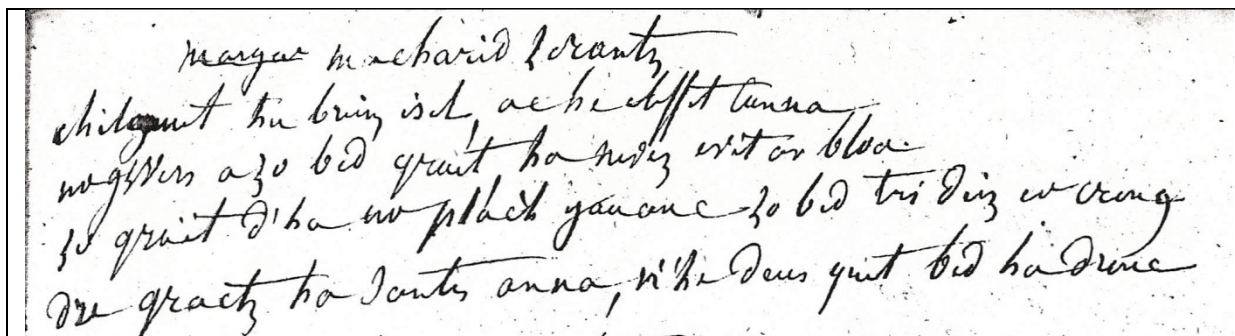 margar macharid Lorantz
chilaouet hu brin isel, ac he uhel tunna
ur gwers a zo bed grait ha nevez evit ar bloa
zo grait d'ha ur plach yaouanc zo bed tri deiz er croug
dre gracz ha santes anna, n'he deus quet bed ha drouc